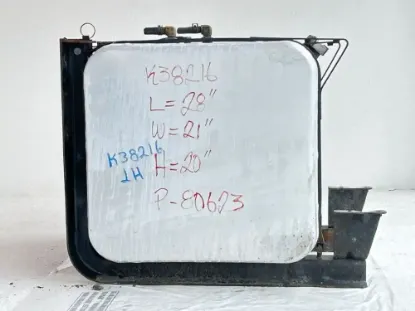 K38216
L=28"
W=21"
K38216
1H
H=20"
P-E0623